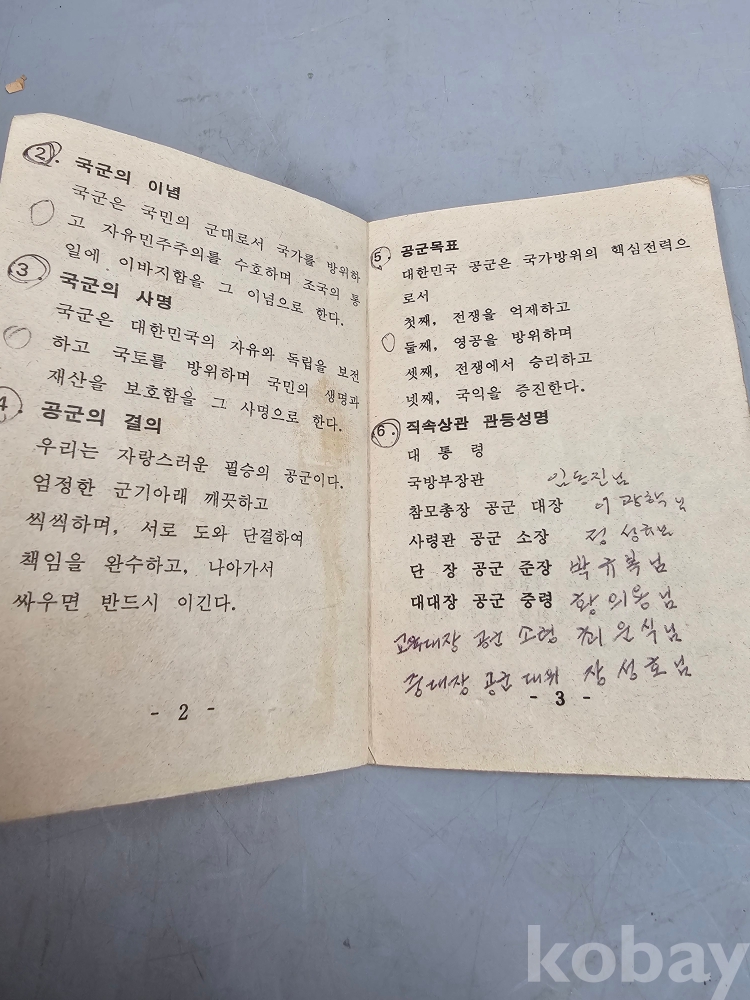 2. 국군의 이념
국군은 국민의 군대로서 국가를 방위하
고 자유민주주의를 수호하며 조국의 통
일에 이바지함을 그 이념으로 한다.
3. 국군의 사명
국군은 대한민국의 자유와 독립을 보전
하고 국토를 방위하며 국민의 생명과
재산을 보호함을 그 사명으로 한다.
4. 공군의 결의
우리는 자랑스러운 필승의 공군이다.
엄정한 군기아래 깨끗하고
씩씩하며, 서로 도와 단결하여
책임을 완수하고, 나아가서
싸우면 반드시 이긴다.
- 2 -
5. 공군목표
대한민국 공군은 국가방위의 핵심전력으
로서
첫째, 전쟁을 억제하고
둘째, 영공을 방위하며
셋째, 전쟁에서 승리하고
넷째, 국익을 증진한다.
6. 직속상관 관등성명
대 통 령
국방부장관
참모총장 공군 대장 이광학님
사령관 공군 소장 정성
단 장 공군 준장 박규복님
대대장 공군 중령 황의웅님
교육대장 공군 소령 최윤식님
중대장 공군 대위 장성호님
- 3 -
kobay